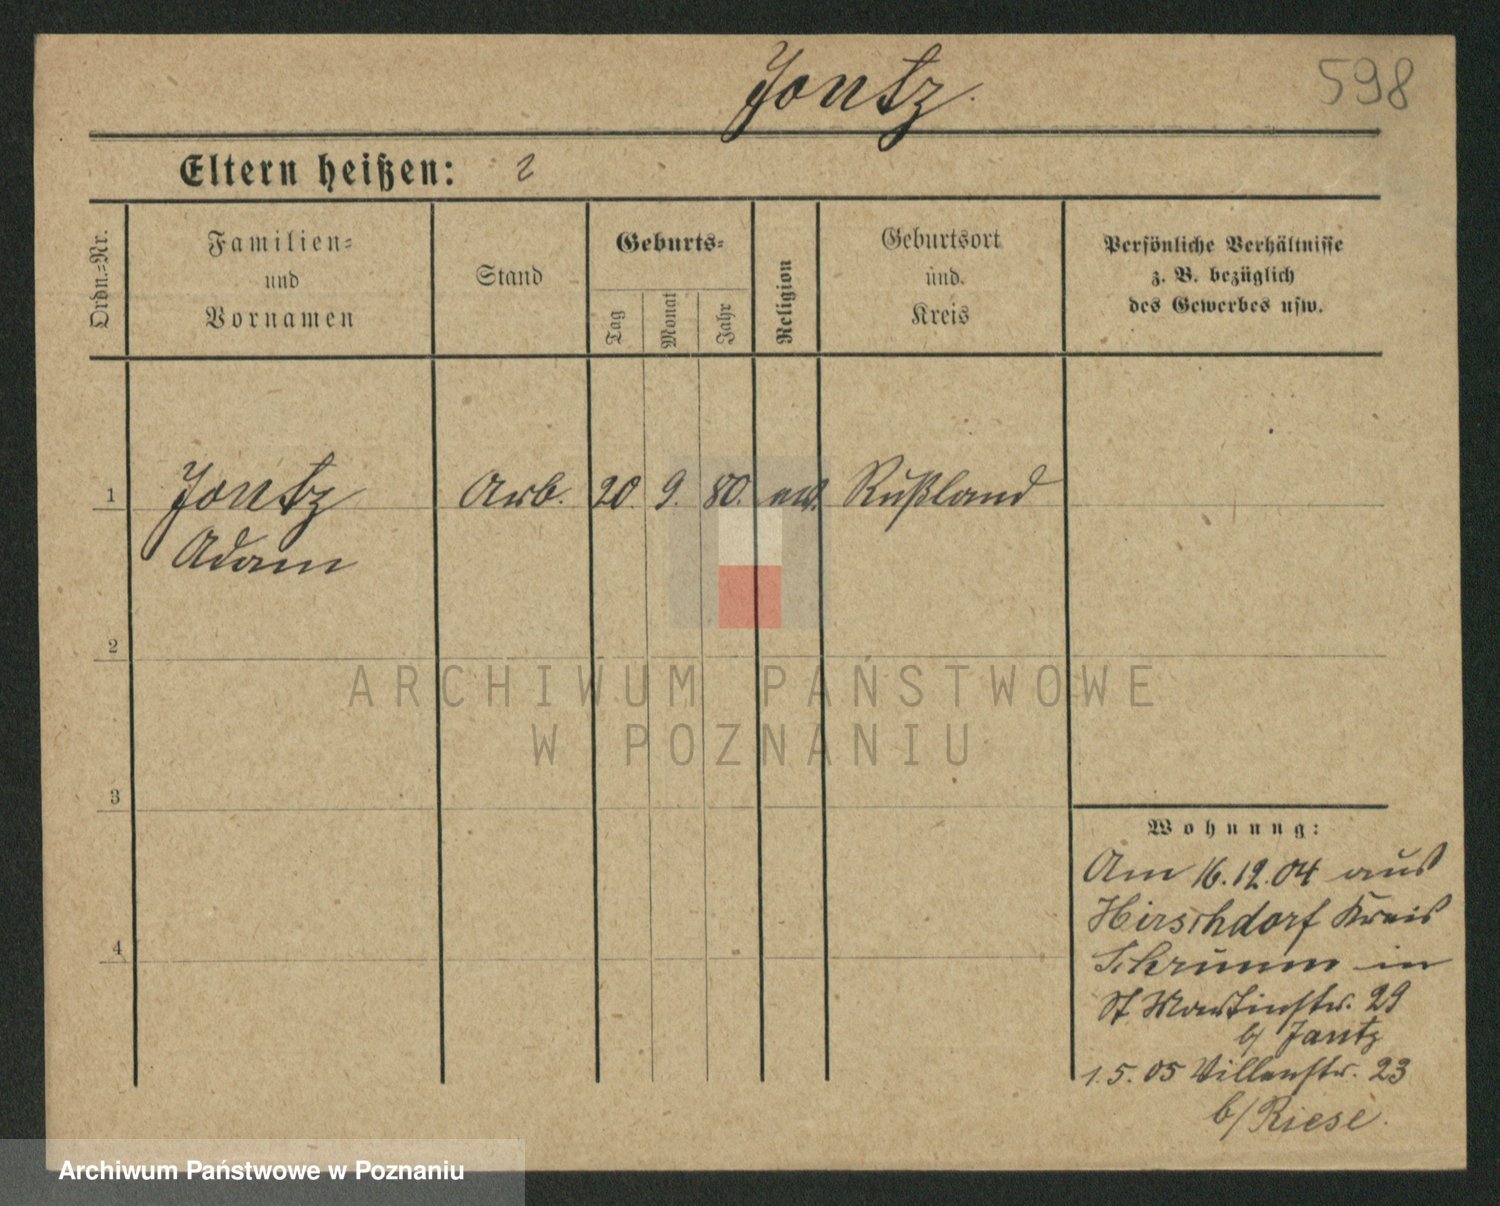 Jontz
598
Eltern heißen: ?
Ordn.=Nr.
Familien=
und
Vornamen
Stand
Geburts=
Tag
Monat
Jahr
Religion
Geburtsort
und
Kreis
Persönliche Verhältnisse
z. B. bezüglich
des Gewerbes usw.
1
Jontz
Adam
Arb.
20.
9.
80.
ev.
Rußland
2
3
4
Wohnung:
Am 16.12.04 aus
Hirschdorf Kreis
Schrimm in
St Martinstr. 29
b/ Jantz
1.5.05 Villenstr. 23
b/ Riese.
ARCHIWUM PAŃSTWOWE
W POZNANIU
Archiwum Państwowe w Poznaniu